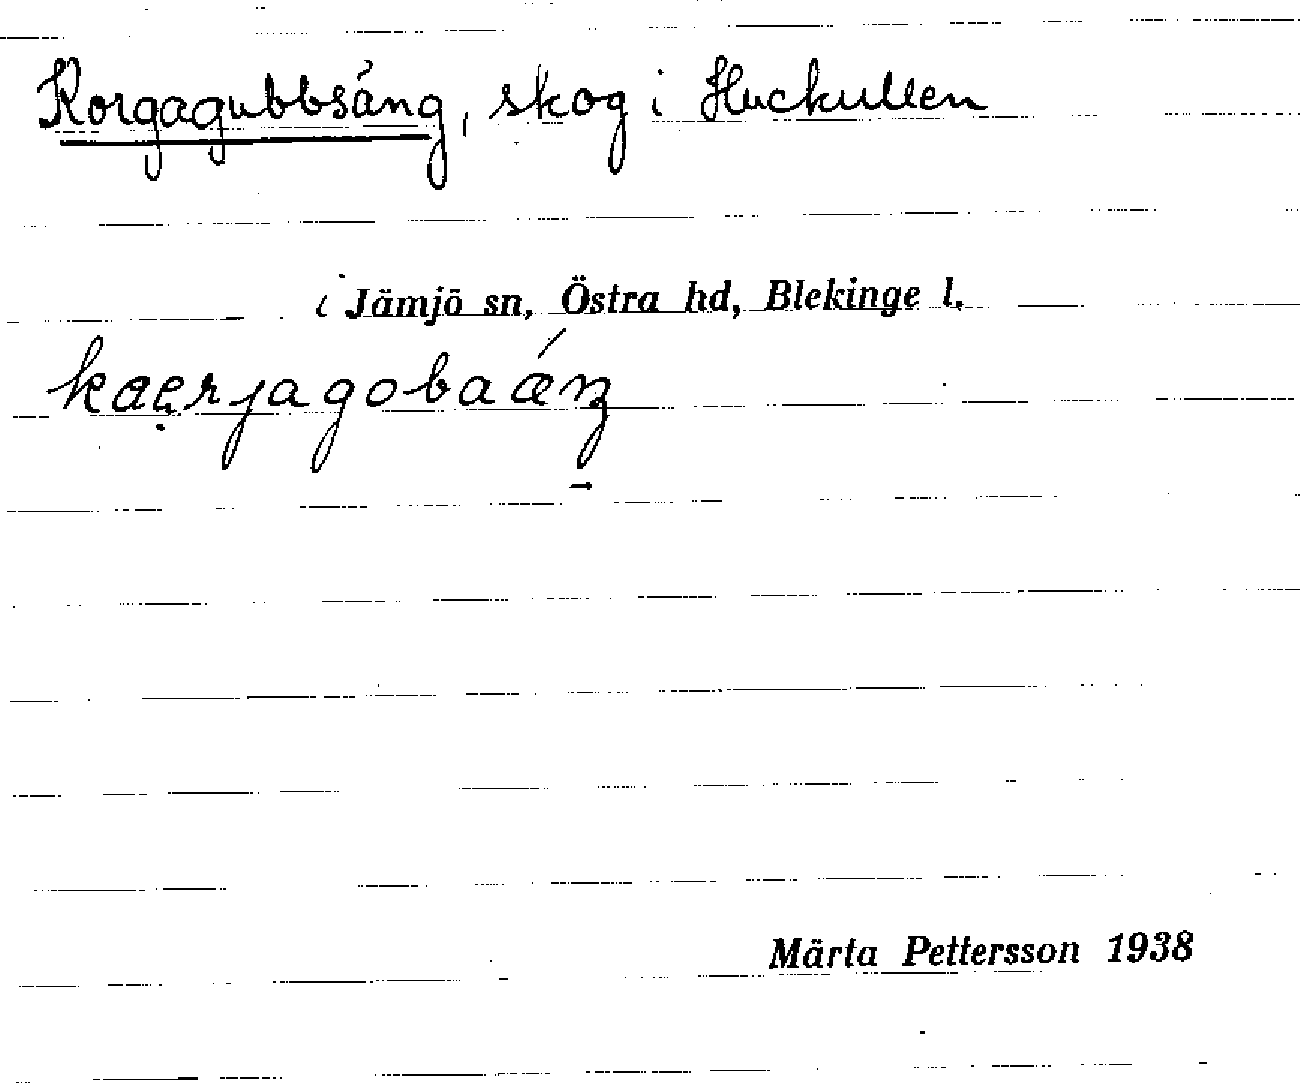 Korgagubbsäng, skog i Huckullen
i Jämjö sn, Östra hd, Blekinge l.
kaerjagobaáŋ
Märta Pettersson 1938